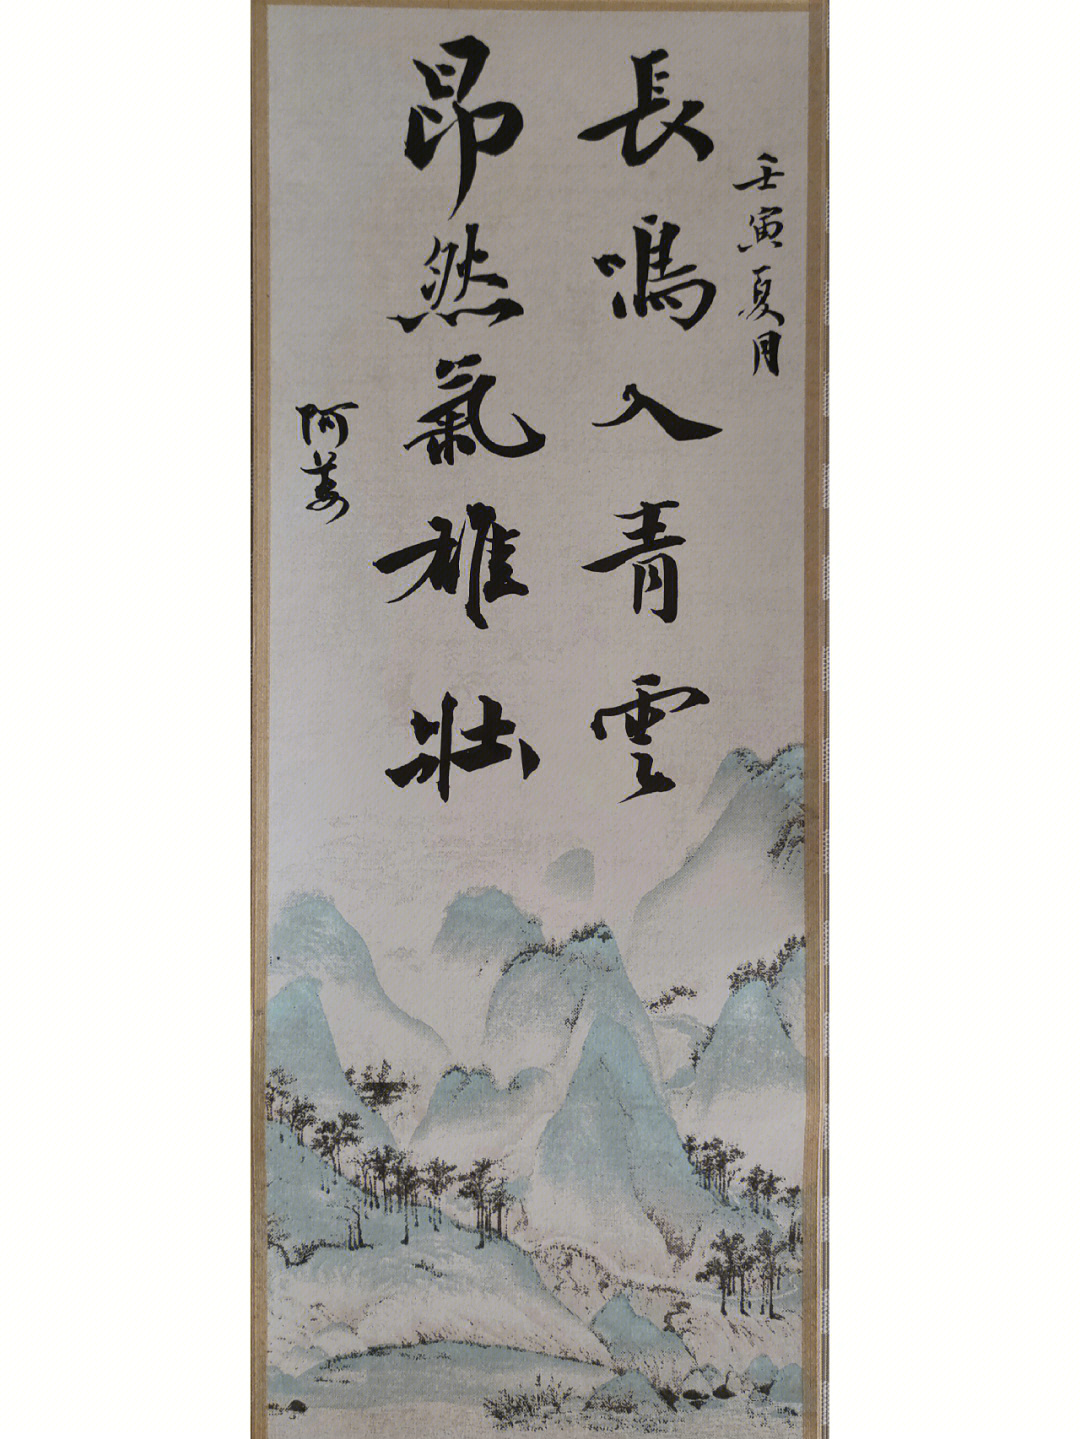 壬寅夏月
長鳴入青雲
昂然氣雄壯
阿姜